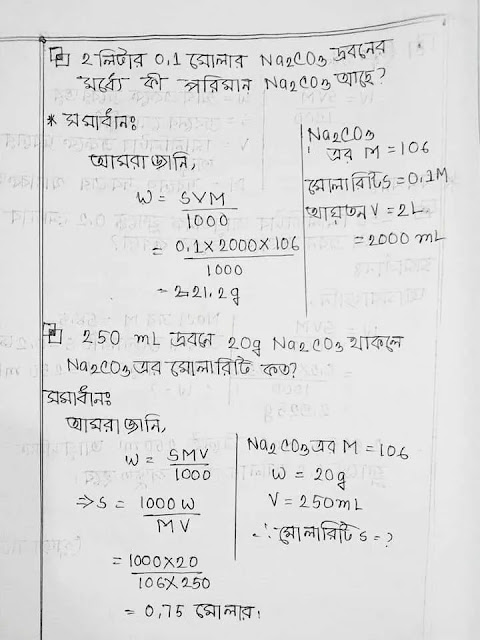 ২ লিটার 0.1 মোলার Na2CO3 দ্রবনের
মধ্যে কী পরিমান Na2CO3 আছে?
* সমাধান:
আমরা জানি,
W = SVM / 1000
= 0.1 X 2000 X 106 / 1000
= 21.2g
Na2CO3
এর M = 106
মোলারিটি S = 0.1M
আয়তন V = 2L
= 2000 mL
250 mL দ্রবনে 20g Na2CO3 থাকলে
Na2CO3 এর মোলারিটি কত?
সমাধান:
আমরা জানি,
W = SMV / 1000
⇒ S = 1000 W / MV
= 1000X20 / 106X250
= 0.75 মোলার।
Na2CO3 এর M = 106
W = 20g
V = 250mL
∴ মোলারিটি S = ?